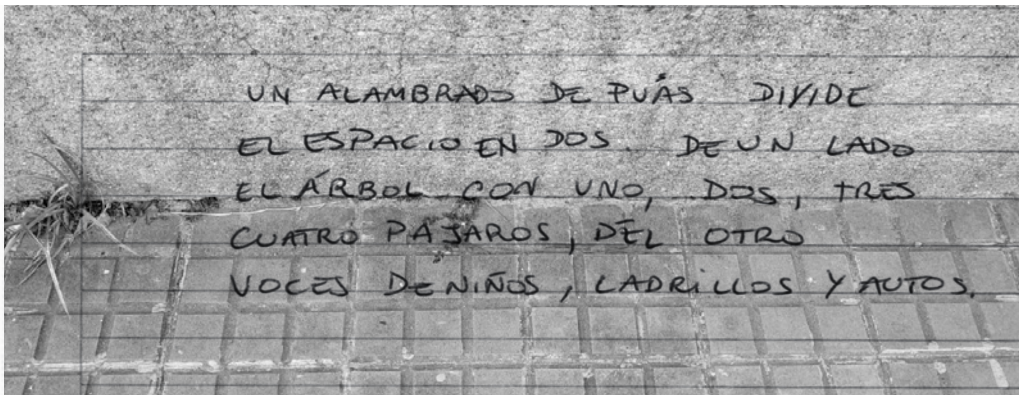 UN ALAMBRADO DE PUÁS DIVIDE
EL ESPACIO EN DOS. DE UN LADO
EL ÁRBOL CON UNO, DOS, TRES
CUATRO PÁJAROS, DEL OTRO
VOCES DE NIÑOS, LADRILLOS Y AUTOS.